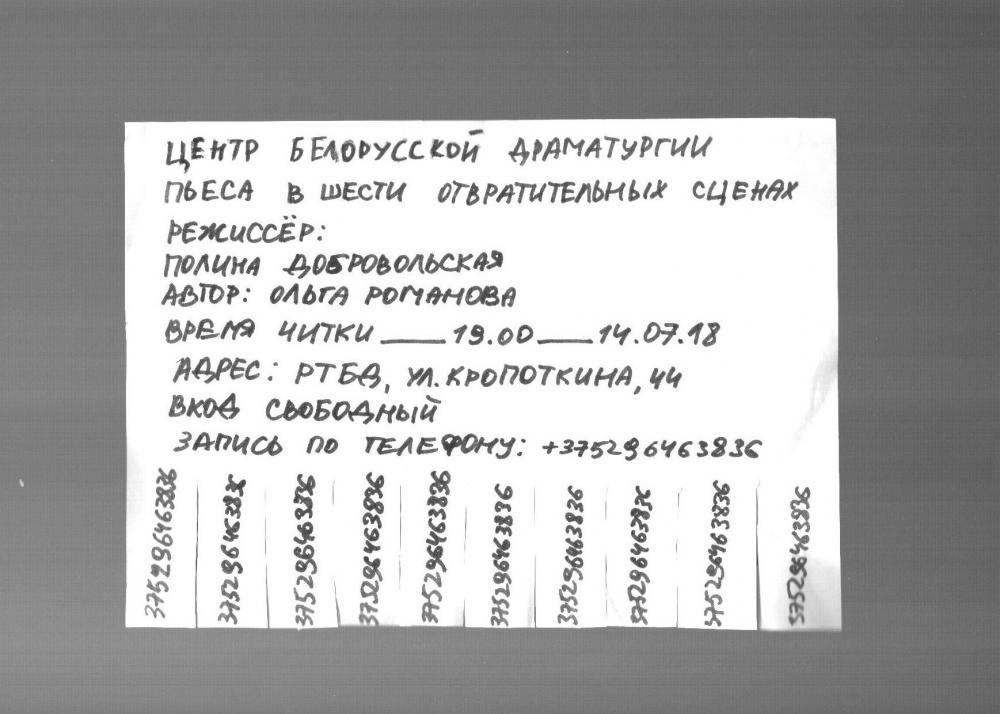 ЦЕНТР БЕЛОРУССКОЙ ДРАМАТУРГИИ
ПЬЕСА В ШЕСТИ ОТВРАТИТЕЛЬНЫХ СЦЕНАХ
РЕЖИССЁР:
ПОЛИНА ДОБРОВОЛЬСКАЯ
АВТОР: ОЛЬГА РОМАНОВА
ВРЕМЯ ЧИТКИ ____19.00____14.07.18
АДРЕС: РТБД, УЛ. КРОПОТКИНА, 44
ВХОД СВОБОДНЫЙ
ЗАПИСЬ ПО ТЕЛЕФОНУ: +375296463836
375296463836
375296463836
375296463836
375296463836
375296463836
375296463836
375296463836
375296463836
375296463836
375296463836